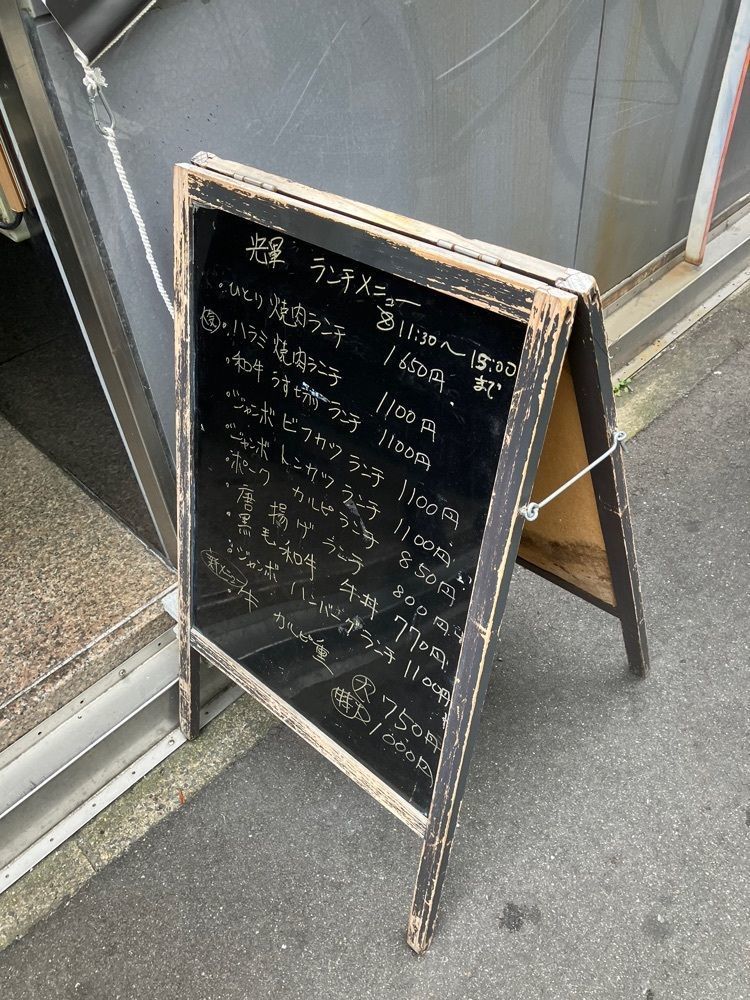 光暈 ランチメニュー
11:30〜15:00まで
・ひとり焼肉ランチ 1650円
・ハラミ焼肉ランチ 1100円
・和牛うす切りランチ 1100円
・ジャンボビーフカツランチ 1100円
・ジャンボトンカツランチ 1100円
・ポークカルビランチ 850円
・唐揚げランチ 800円
・黒毛和牛 牛丼 770円
・ジャンボハンバーグランチ 1100円
・牛カルビ重
750円
1000円